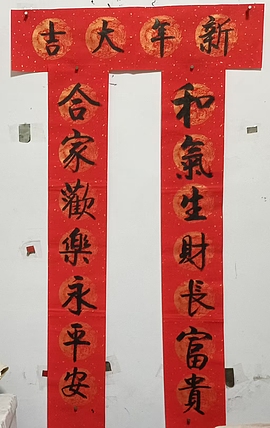 新年大吉
和氣生財長富貴
合家歡樂永平安